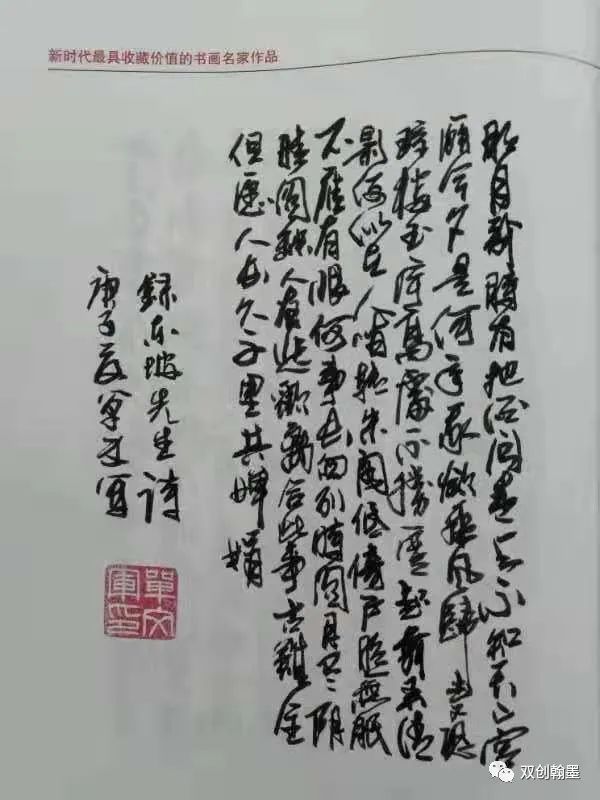 新时代最具收藏价值的书画名家作品
明月幾時有把酒问青天不知天上宫
阙今夕是何年我欲乘风歸去又恐
琼楼玉宇高處不勝寒起舞弄清
影何似在人间转朱阁低倚户照無眠
不應有恨何事长向别時圆月有阴
晴圆缺人有悲歡離合此事古難全
但愿人长久千里共婵娟
録东坡先生詩
庚子
單文軍印
双创翰墨